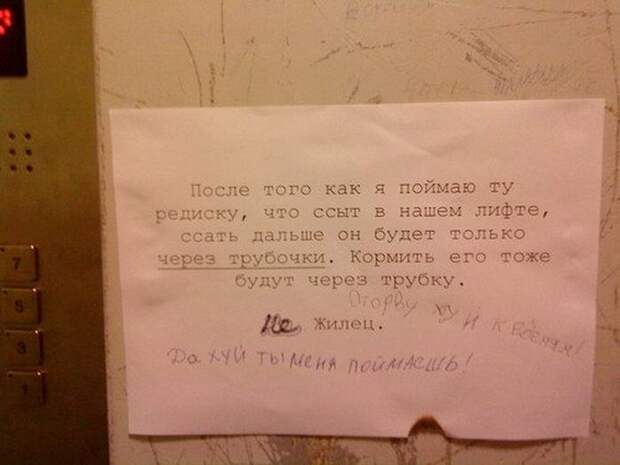 После того как я поймаю ту
редиску, что ссыт в нашем лифте,
ссать дальше он будет только
через трубочки. Кормить его тоже
будут через трубку.
Оторву ху й к
Не Жилец.
Да хуй ты меня поймаешь!
7
5
3
1